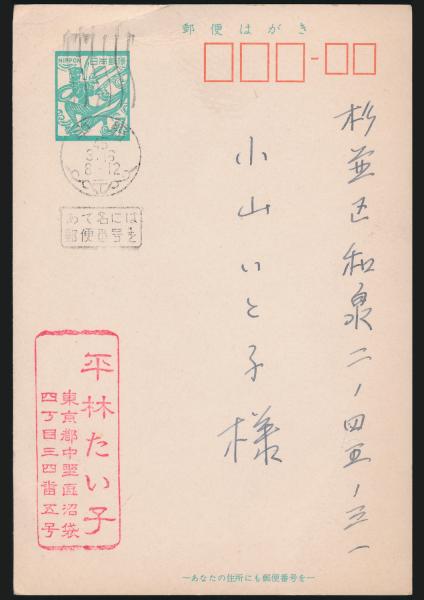 郵便はがき
NIPPON 日本郵便
杉並区和泉二ノ四五ノ三一
小山いと子様
3.16
8-12
あて名には
郵便番号を
平林たい子
東京都中野区沼袋
四丁目三四番五号
―あなたの住所にも郵便番号を―